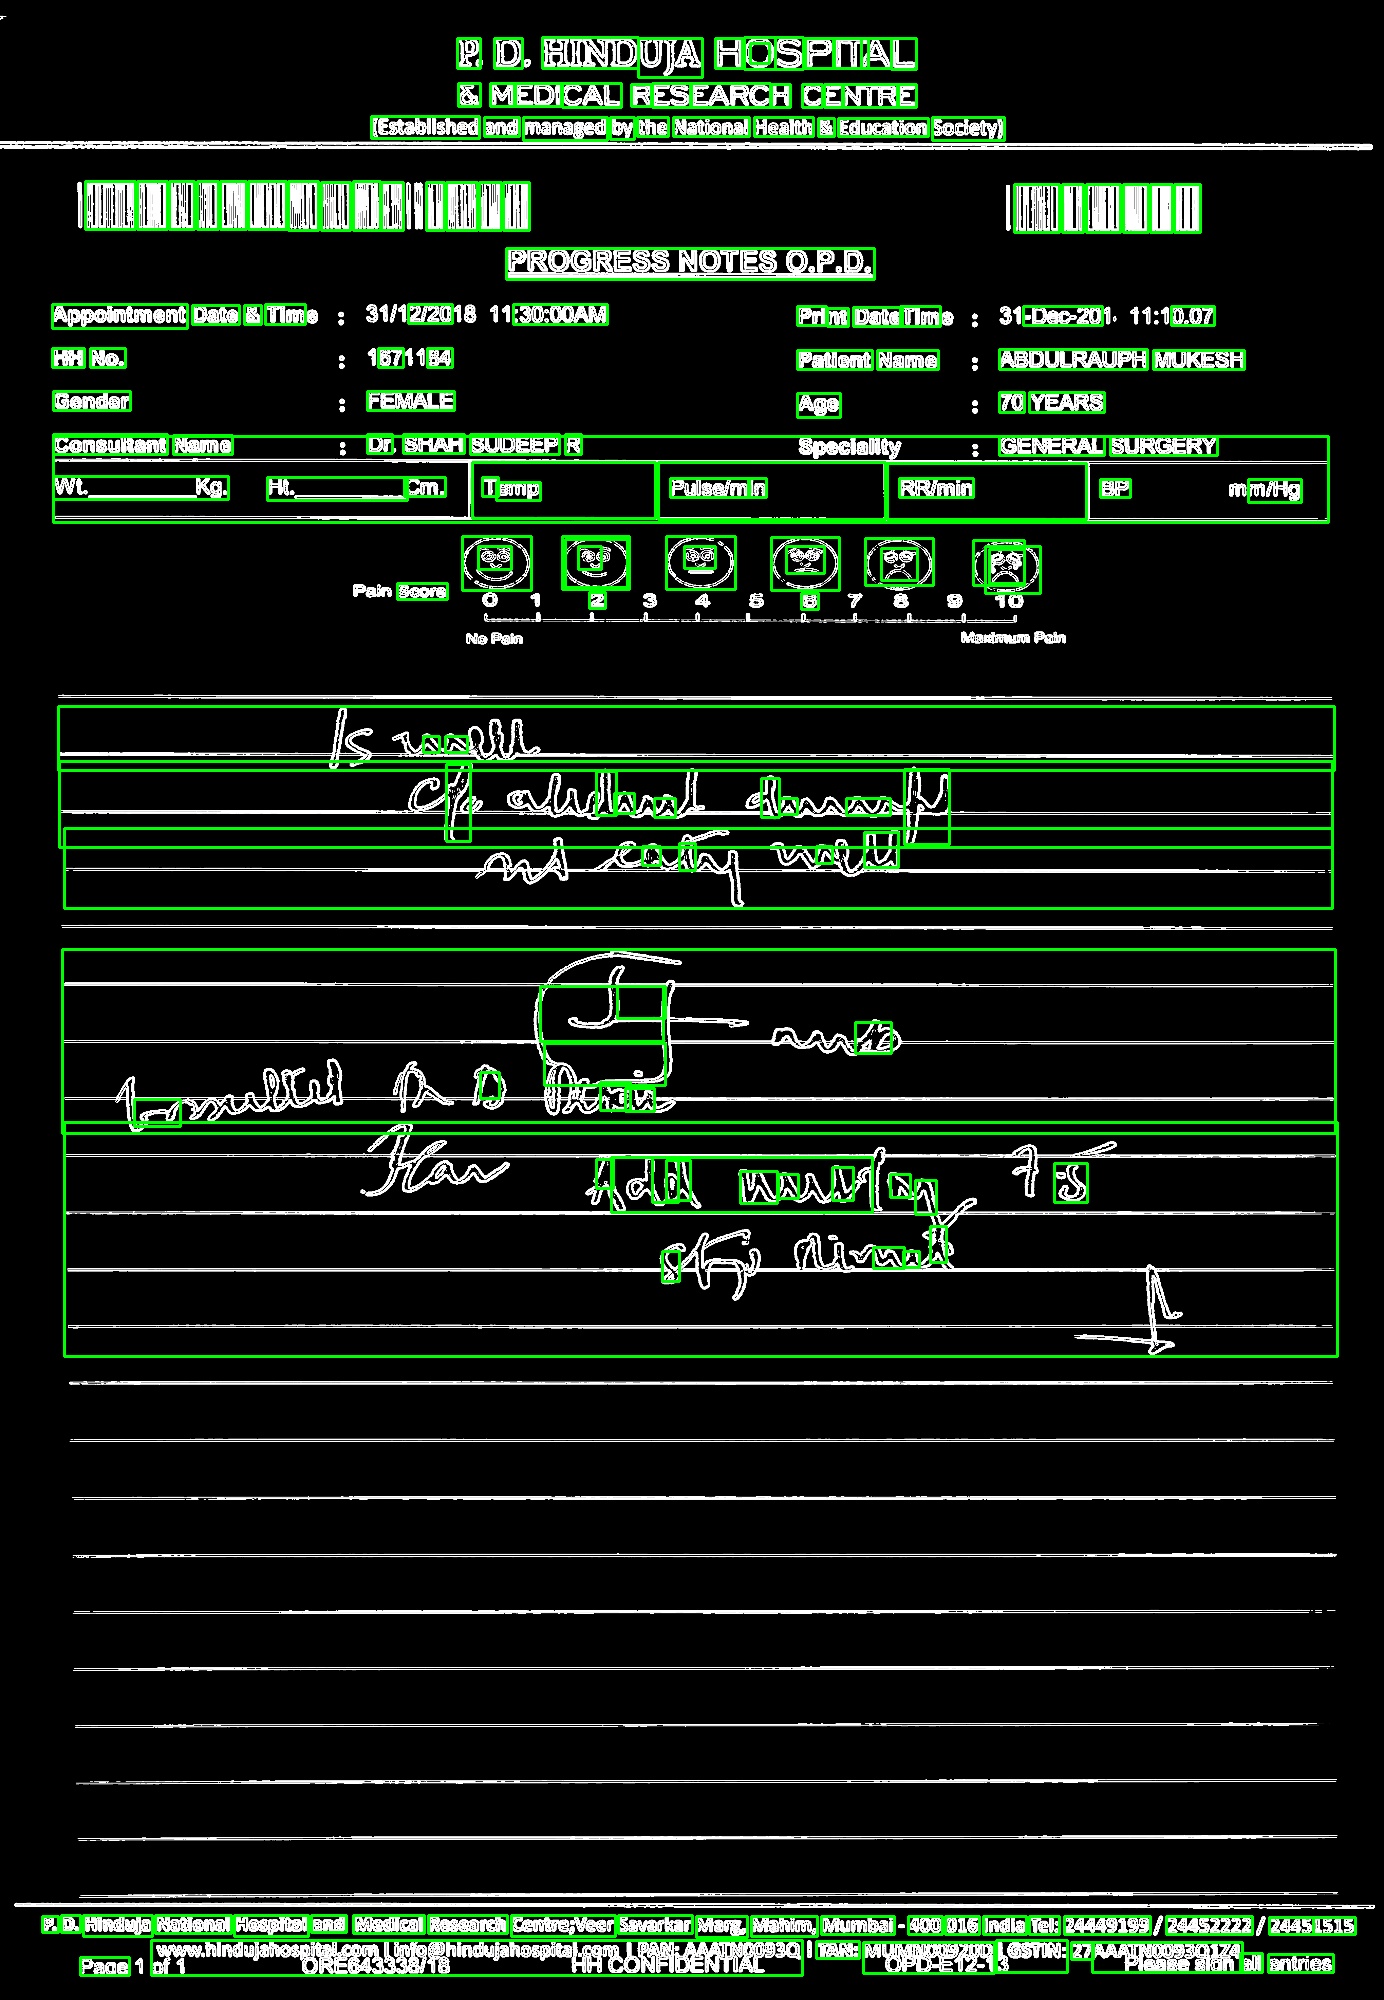 P. D. HINDUJA HOSPITAL
& MEDICAL RESEARCH CENTRE
(Established and managed by the National Health & Education Society)
PROGRESS NOTES O.P.D.
Appointment Date & Time : 31/12/2018 11:30:00AM Print Date Time : 31-Dec-201 11:10.07
HH No. : 1671164 Patient Name : ABDULRAUPH MUKESH
Gender : FEMALE Age : 70 YEARS
Consultant Name : Dr. SHAH SUDEEP R Speciality : GENERAL SURGERY
Wt. Kg. Ht. Cm. Temp Pulse/min RR/min BP mm/Hg
Pain Score 0 1 2 3 4 5 6 7 8 9 10
No Pain Maximum Pain
Is well
not well
Plan
P. D. Hinduja National Hospital and Medical Research Centre, Veer Savarkar Marg, Mahim, Mumbai - 400 016 India Tel: 24449199 / 24452222 / 24451515
www.hindujahospital.com | info@hindujahospital.com | PAN: AAATN0093Q | TAN: MUMN00920D | GSTIN: 27AAATN0093Q1Z4
Page 1 of 1 ORE643338/18 HH CONFIDENTIAL OPD-E12-13 Please sign all entries